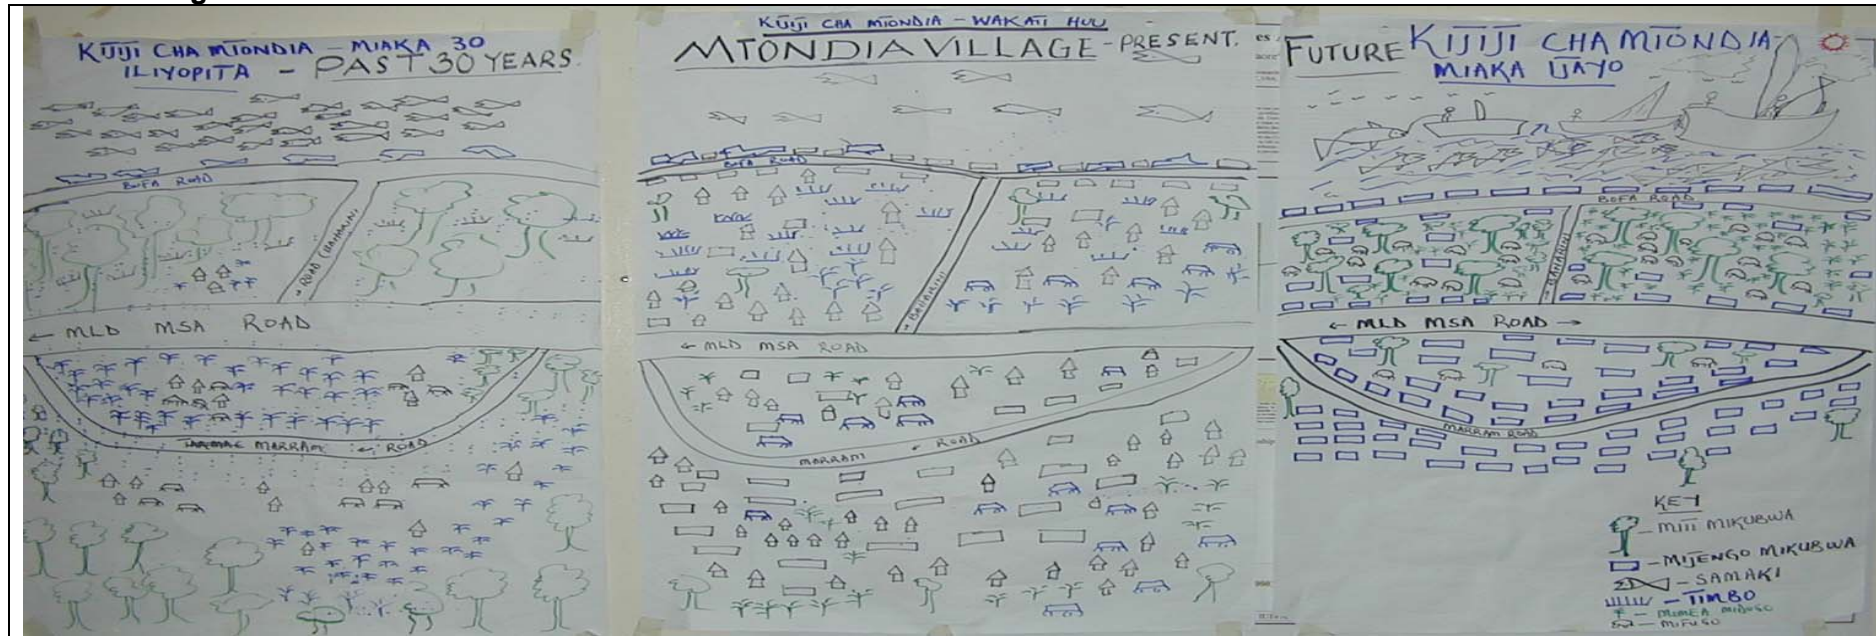 KIJIJI CHA MTONDIA – MIAKA 30
ILIYOPITA – PAST 30 YEARS.
BOFA ROAD
ROAD (BAHARINI)
← MLD MSA ROAD
MARRAM ← ROAD
KIJIJI CHA MTONDIA – WAKATI HUU
MTONDIA VILLAGE - PRESENT.
BOFA ROAD
BAHARINI
← MLD MSA ROAD
MARRAM ← ROAD
FUTURE KIJIJI CHA MTONDIA-
MIAKA IJAYO
BOFA ROAD
BAHARINI
← MLD MSA ROAD →
MARRAM ROAD
KEY
– MITI MIKUBWA
– MIJENGO MIKUBWA
– SAMAKI
– TIMBO
– MIMEA MIDOGO
– MIFUGO